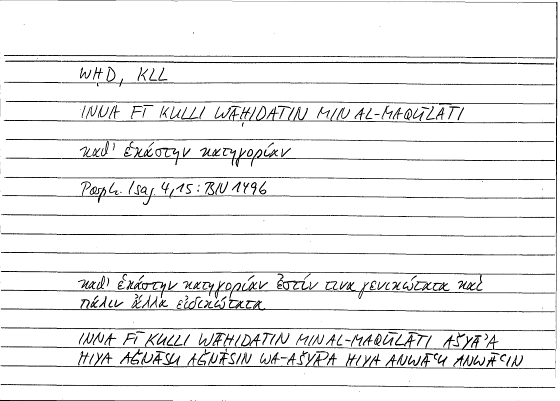 WḤD, KLL
INNA FĪ KULLI WĀḤIDATIN MIN AL-MAQŪLĀTI
καθ' ἑκάστην κατηγορίαν
Porph. Isag. 4,15 : BN 149b
καθ' ἑκάστην κατηγορίαν ἔστιν τινα γενικώτατα καὶ
πάλιν ἄλλα εἰδικώτατα
INNA FĪ KULLI WĀḤIDATIN MIN AL-MAQŪLĀTI AŠYĀʾA
HIYA AǦNĀSU AǦNĀSIN WA-AŠYĀʾA HIYA ANWĀʿU ANWĀʿIN